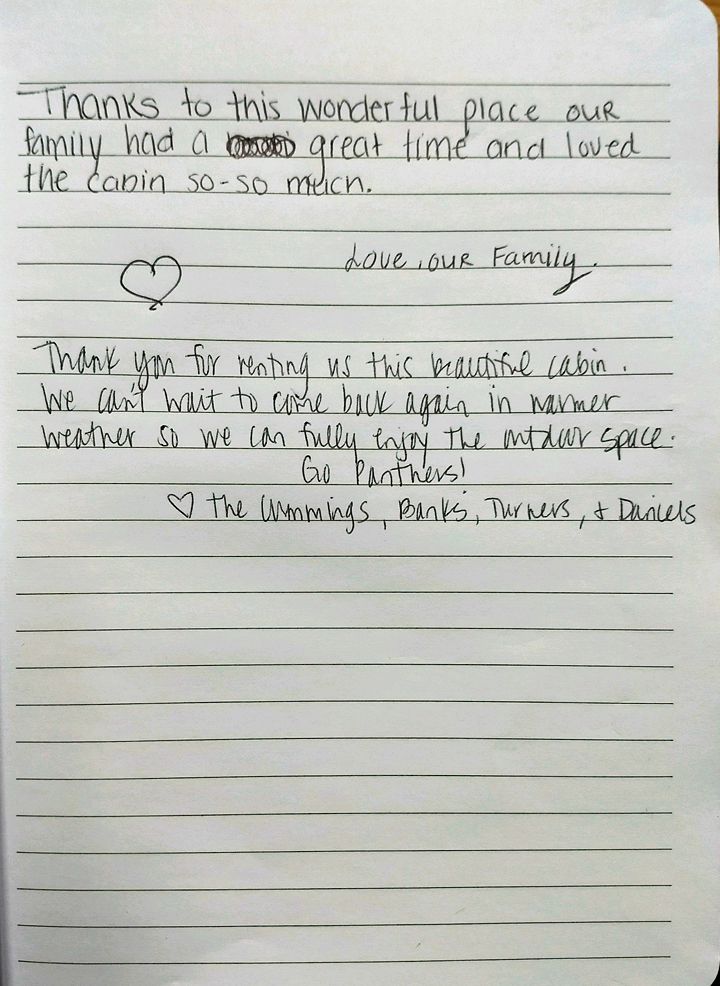 Thanks to this wonderful place our
family had a great time and loved
the cabin so-so much.
Love, our Family.
Thank you for renting us this beautiful cabin.
We can't wait to come back again in warmer
weather so we can fully enjoy the outdoor space.
Go Panthers!
♡ The Cummings, Banks, Turners, & Daniels